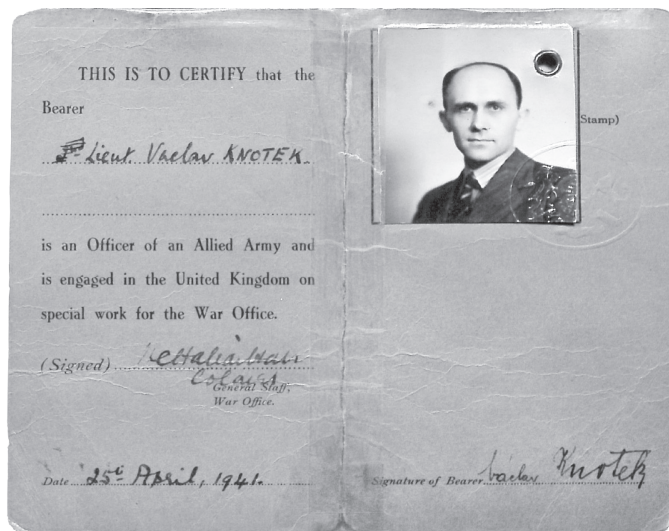 THIS IS TO CERTIFY that the
Bearer
Lieut. Vaclav KNOTEK.
is an Officer of an Allied Army and
is engaged in the United Kingdom on
special work for the War Office.
(Signed)
Colonel
General Staff,
War Office.
Date 25th April, 1941.
Stamp)
Signature of Bearer Václav Knotek